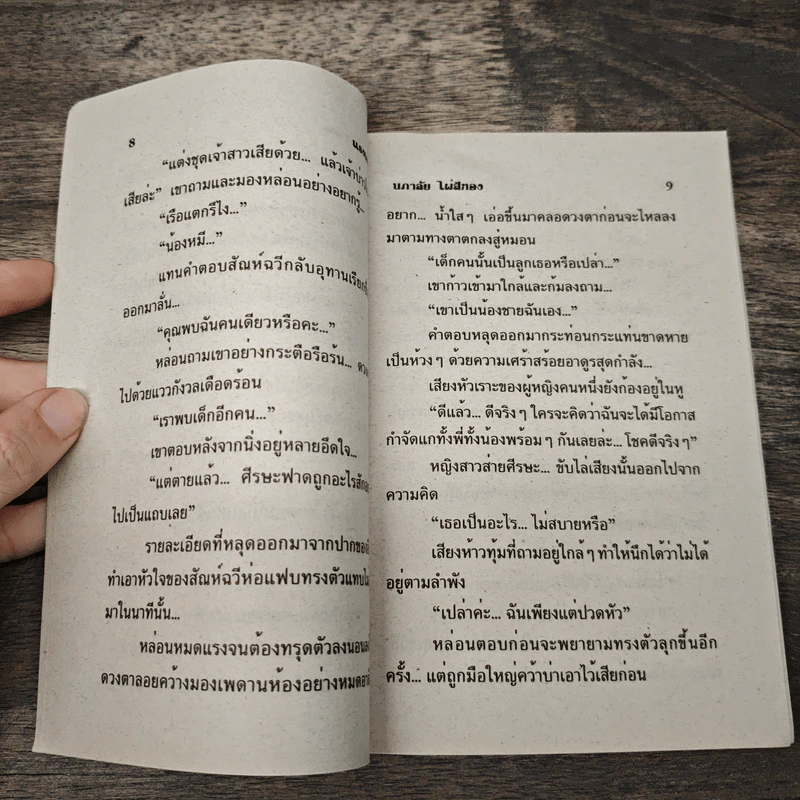 8
"แต่งชุดเจ้าสาวเสียด้วย... แล้วเจ้าบ่าว
เสียล่ะ" เขาถามและมองหล่อนอย่างอยากรู้...
"เรือแตกรึไง..."
"น้องหมี..."
แทนคำตอบสัณห์ฉวีกลับอุทานเรียก
ออกมาลั่น...
"คุณพบฉันคนเดียวหรือคะ..."
หล่อนถามเขาอย่างกระตือรือร้น...
ไปด้วยแววกังวลเดือดร้อน
"เราพบเด็กอีกคน..."
เขาตอบหลังจากนิ่งอยู่หลายอึดใจ...
"แต่ตายแล้ว... ศีรษะฟาดถูกอะไร
ไปเป็นแถบเลย"
รายละเอียดที่หลุดออกมาจากปาก
ทำเอาหัวใจของสัณห์ฉวีห่อแฟบทรงตัวแทบ
มาในนาทีนั้น...
หล่อนหมดแรงจนต้องทรุดตัวลงนอน
ดวงตาลอยคว้างมองเพดานห้องอย่างหมด
นภาลัย ไผ่สีทอง 9
อยาก... น้ำใสๆ เอ่อขึ้นมาคลอดวงตาก่อนจะไหลลง
มาตามทางตาตกลงสู่หมอน
"เด็กคนนั้นเป็นลูกเธอหรือเปล่า..."
เขาก้าวเข้ามาใกล้และก้มลงถาม...
"เขาเป็นน้องชายฉันเอง..."
คำตอบหลุดออกมากระท่อนกระแท่นขาดหาย
เป็นห้วงๆ ด้วยความเศร้าสร้อยอาดูรสุดกำลัง...
เสียงหัวเราะของผู้หญิงคนหนึ่งยังก้องอยู่ในหู
"ดีแล้ว... ดีจริงๆ ใครจะคิดว่าฉันจะได้มีโอกาส
กำจัดแกทั้งพี่ทั้งน้องพร้อมๆ กันเลยล่ะ... โชคดีจริงๆ"
หญิงสาวส่ายศีรษะ... ขับไล่เสียงนั้นออกไปจาก
ความคิด
"เธอเป็นอะไร... ไม่สบายหรือ"
เสียงห้าวทุ้มที่ถามอยู่ใกล้ๆ ทำให้นึกได้ว่าไม่ได้
อยู่ตามลำพัง
"เปล่าค่ะ... ฉันเพียงแต่ปวดหัว"
หล่อนตอบก่อนจะพยายามทรงตัวลุกขึ้นอีก
ครั้ง... แต่ถูกมือใหญ่คว้าบ่าเอาไว้เสียก่อน